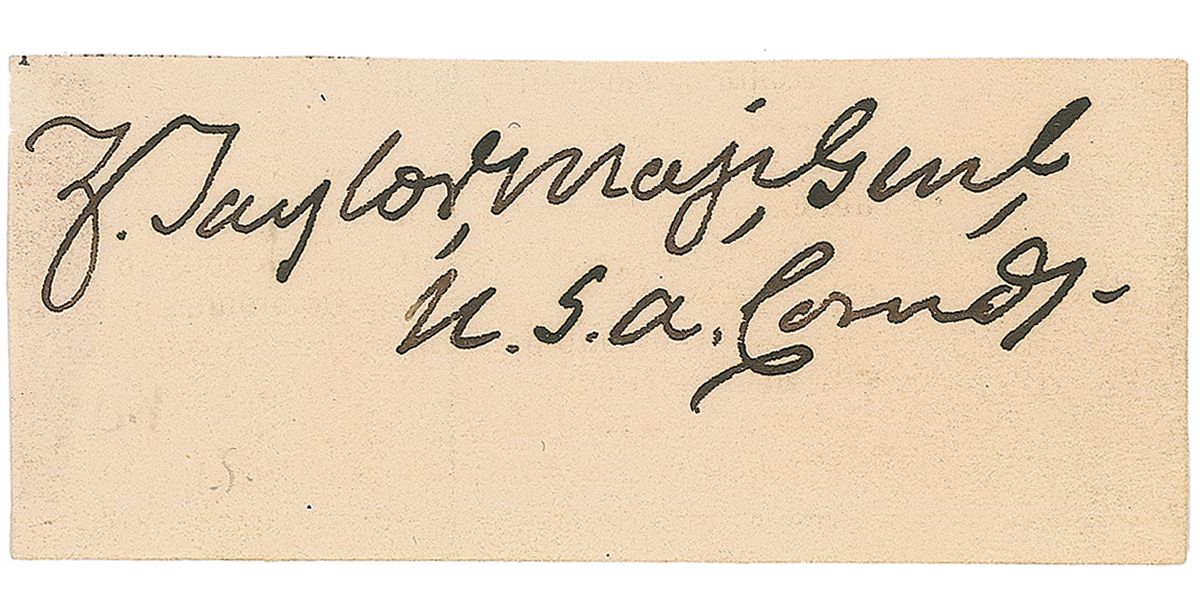 Z. Taylor, Maj, Genl,
U. S. A. Comdg-